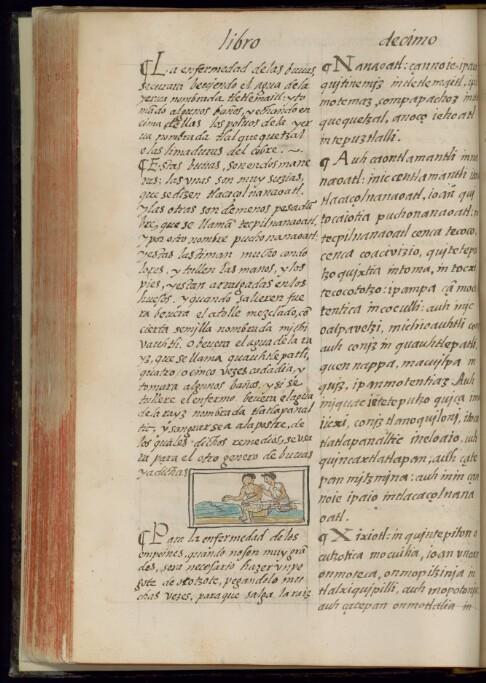 libro decimo
¶ La enfermedad de las buuas,
se curara beujendo el agua de la
yerua nombrada tletlemaitl: y to
mãdo algunos baños, y echando en
cima dellas los poluos de la yer
ua nombrada tlalquequetzal
o las limaduras del cobre.
¶ Estas buuas, son en dos mane
ras: las vnas son muy suzias,
que se dizen tlacacolnanaoatl:
y las otras son de menos pesadũ
bre, que se llamã tecpilnanaoatl:
y por otro nombre puchonanaoatl:
y estas lastiman mucho con do
lores, y tullen las manos, y los
pies, y estan arraigadas en los
huesos. y quando salieren fue
ra beuera el atolle mezclado, cõ
cierta semilla nombrada michi
vauhtli. O beuera el agua de la ra
yz, que se llama quauhtlepatli,
quatro o cinco vezes cada dia, y
tomara algunos baños, y si se
tullere el enfermo beuera el agua
de la rayz nombrada tlatlapanal
tic, y sangrarse a la postre, de
los quales dichos remedios, se vsa
ra para el otro genero de buuas
ya dichas
¶ Para la enfermedad de los
empeines, quando no son muy grã
des, sera necesario hazer vn pe
gote de ocotzote, pegandolo mu
chas vezes, para que salga la raiz
¶ Nanaoatl: çan no te
quitinemjz in tletlemaitl,
motemaz, compapachoz in
quequetzal, anoço
in tepuztlalli.
¶ Auh ca ontlamantli in
naoatl: injc centlamantli
tlacacolnanaoatl, ioan
tocaiotia puchonanaoatl:
tecpilnanaoatl cenca tecoco,
cenca coacivizio,
tzoquixtia in toma, in tocxi
tecocototzo: ipampa ca
tentica in oceulli: auh injc
oalpavetzi, michioauhtli
auh conjz in quauhtlepatli
quen nappa, macujlpa
qujz, ipan motentiaz. Auh
ioan
icxi, conjz tlanoquiloni,
tlatlapanaltic ineloaio, auh
quincaxtlatlapan, auh çate
pan mjtzmina: auh injn
noie ipaio in tlacacolnana
oatl.
¶ Xixiotl: in quin tepiton
cuçotica mocuitia, ioan
onmoteca, onmopitzinja in
tlalxiquipilli, auh mopotonja
auh çatepan onmotlalia in